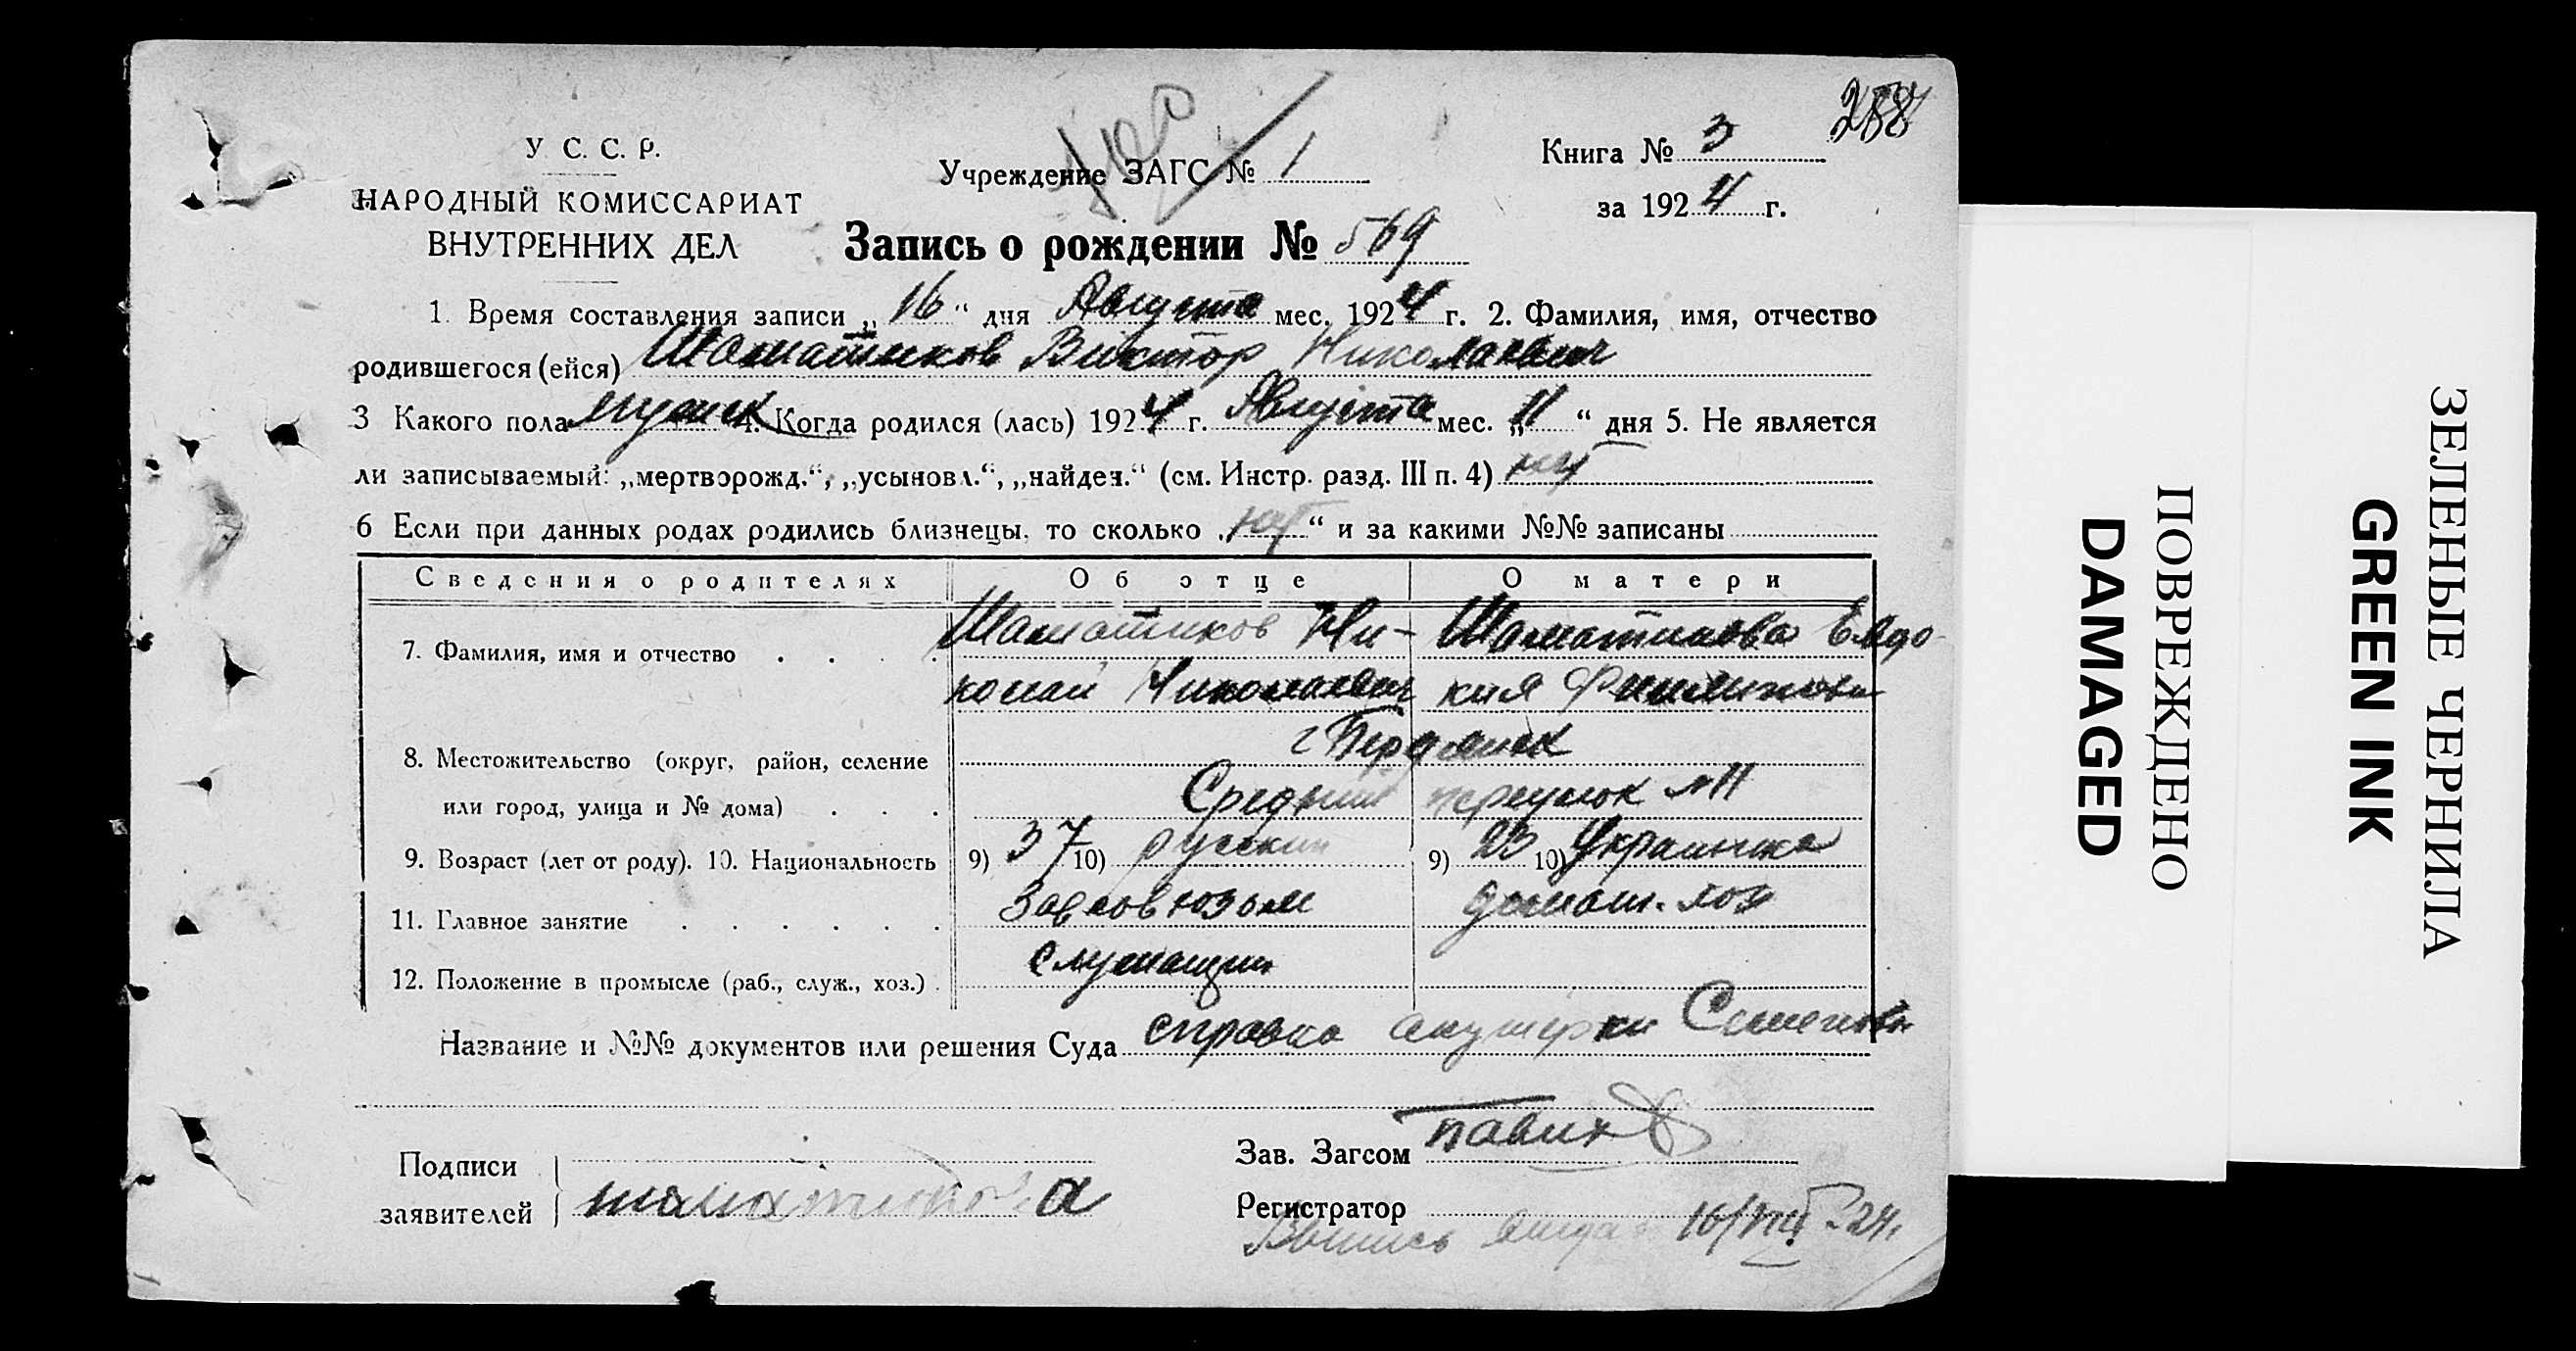 288
У. С. С. Р.
НАРОДНЫЙ КОМИССАРИАТ
ВНУТРЕННИХ ДЕЛ
Учреждение ЗАГС № 1
Книга № 3
за 1924 г.
Запись о рождении № 569
1. Время составления записи „16“ дня Августа мес. 1924 г. 2. Фамилия, имя, отчество
родившегося (ейся) Шаматиков Виктор Николаевич
3 Какого пола мужск 4. Когда родился (лась) 1924 г. Августа мес. „11“ дня 5. Не является
ли записываемый: „мертворожд.“, „усыновл.“, „найден.“ (см. Инстр. разд. III п. 4) нет
6 Если при данных родах родились близнецы, то сколько „нет“ и за какими №№ записаны
Сведения о родителях Об отце О матери
7. Фамилия, имя и отчество
Шаматиков Ни- Шаматикова Евдо-
колай Николаевич кия
8. Местожительство (округ, район, селение
или город, улица и № дома)
г Бердянск
Средний переулок № 11
9. Возраст (лет от роду). 10. Национальность 9) 37 10) русский 9) 23 10) Украинка
11. Главное занятие домаш. хоз
12. Положение в промысле (раб., служ., хоз.) Служащий
Название и №№ документов или решения Суда справка акушерки Семенова
Подписи
заявителей Шаматикова
Зав. Загсом
Регистратор
16/VIII 24.
ПОВРЕЖДЕНО
DAMAGED
ЗЕЛЕНЫЕ ЧЕРНИЛА
GREEN INK